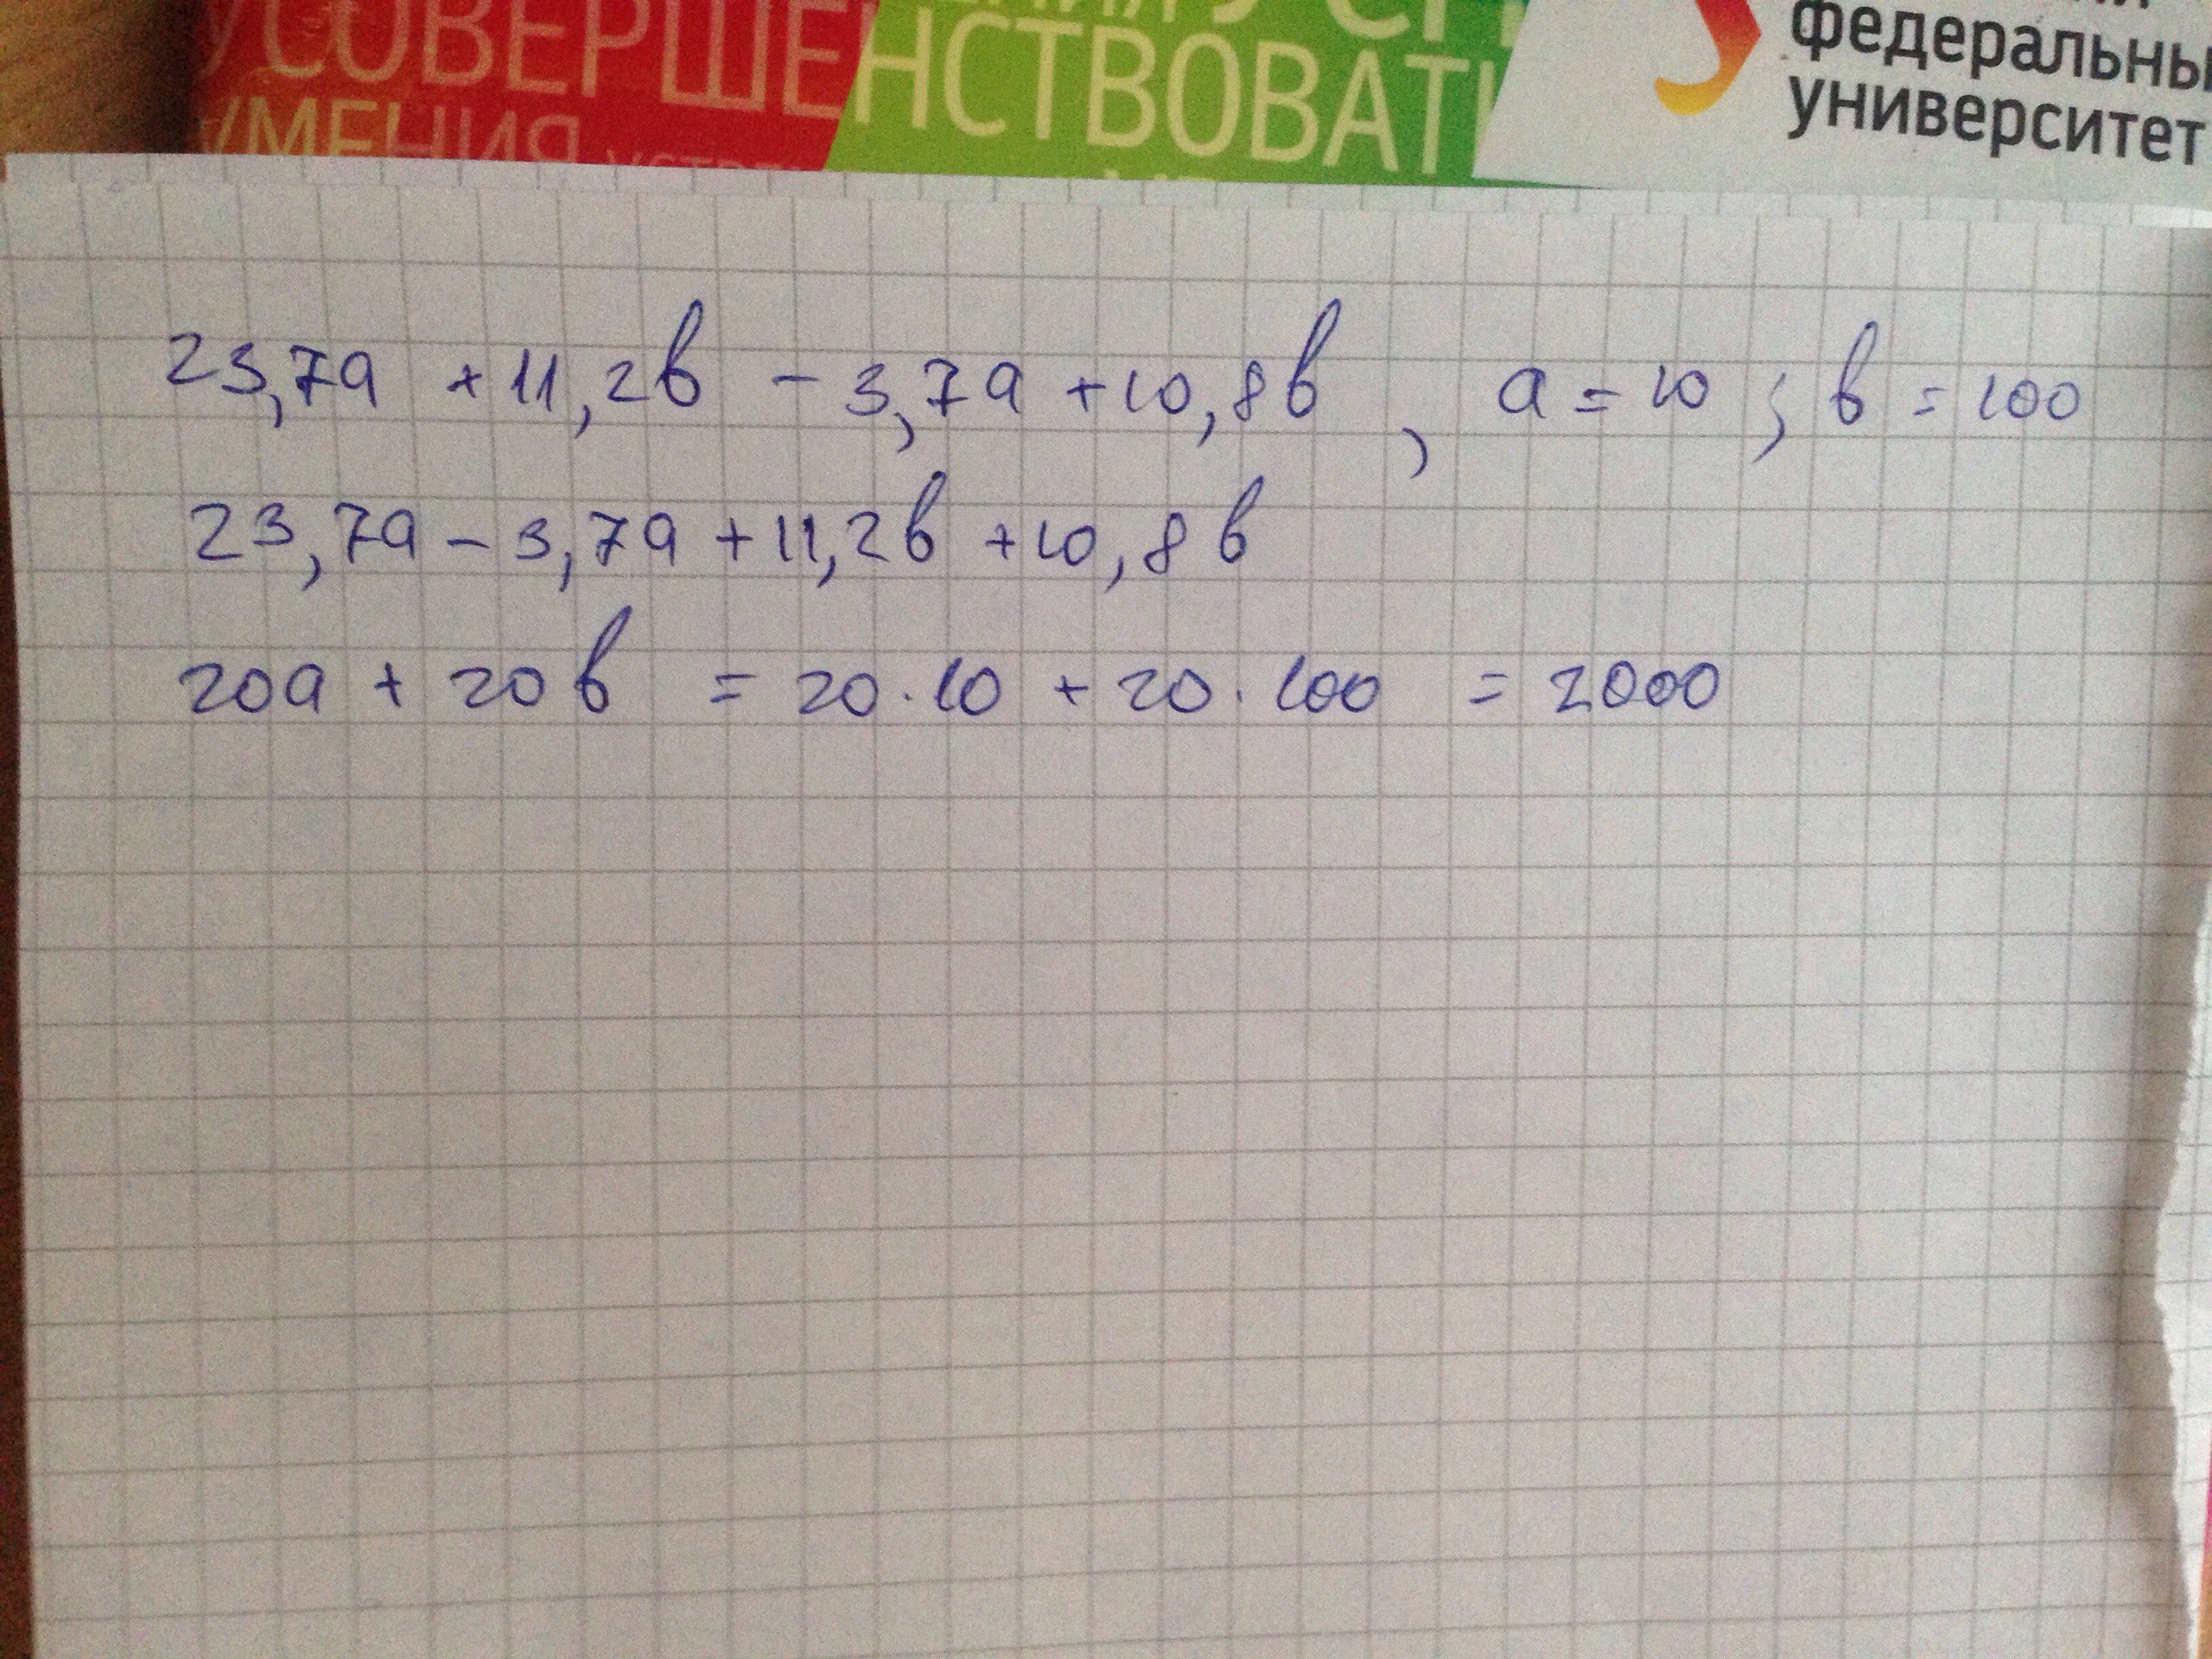 УСОВЕРШЕНСТВОВАТЬ
УМЕНИЯ
федеральны
университет
23,7a + 11,2в - 3,7a + 10,8в , a = 10 ; в = 100
23,7a - 3,7a + 11,2в + 10,8в
20a + 20в = 20 · 10 + 20 · 100 = 2000